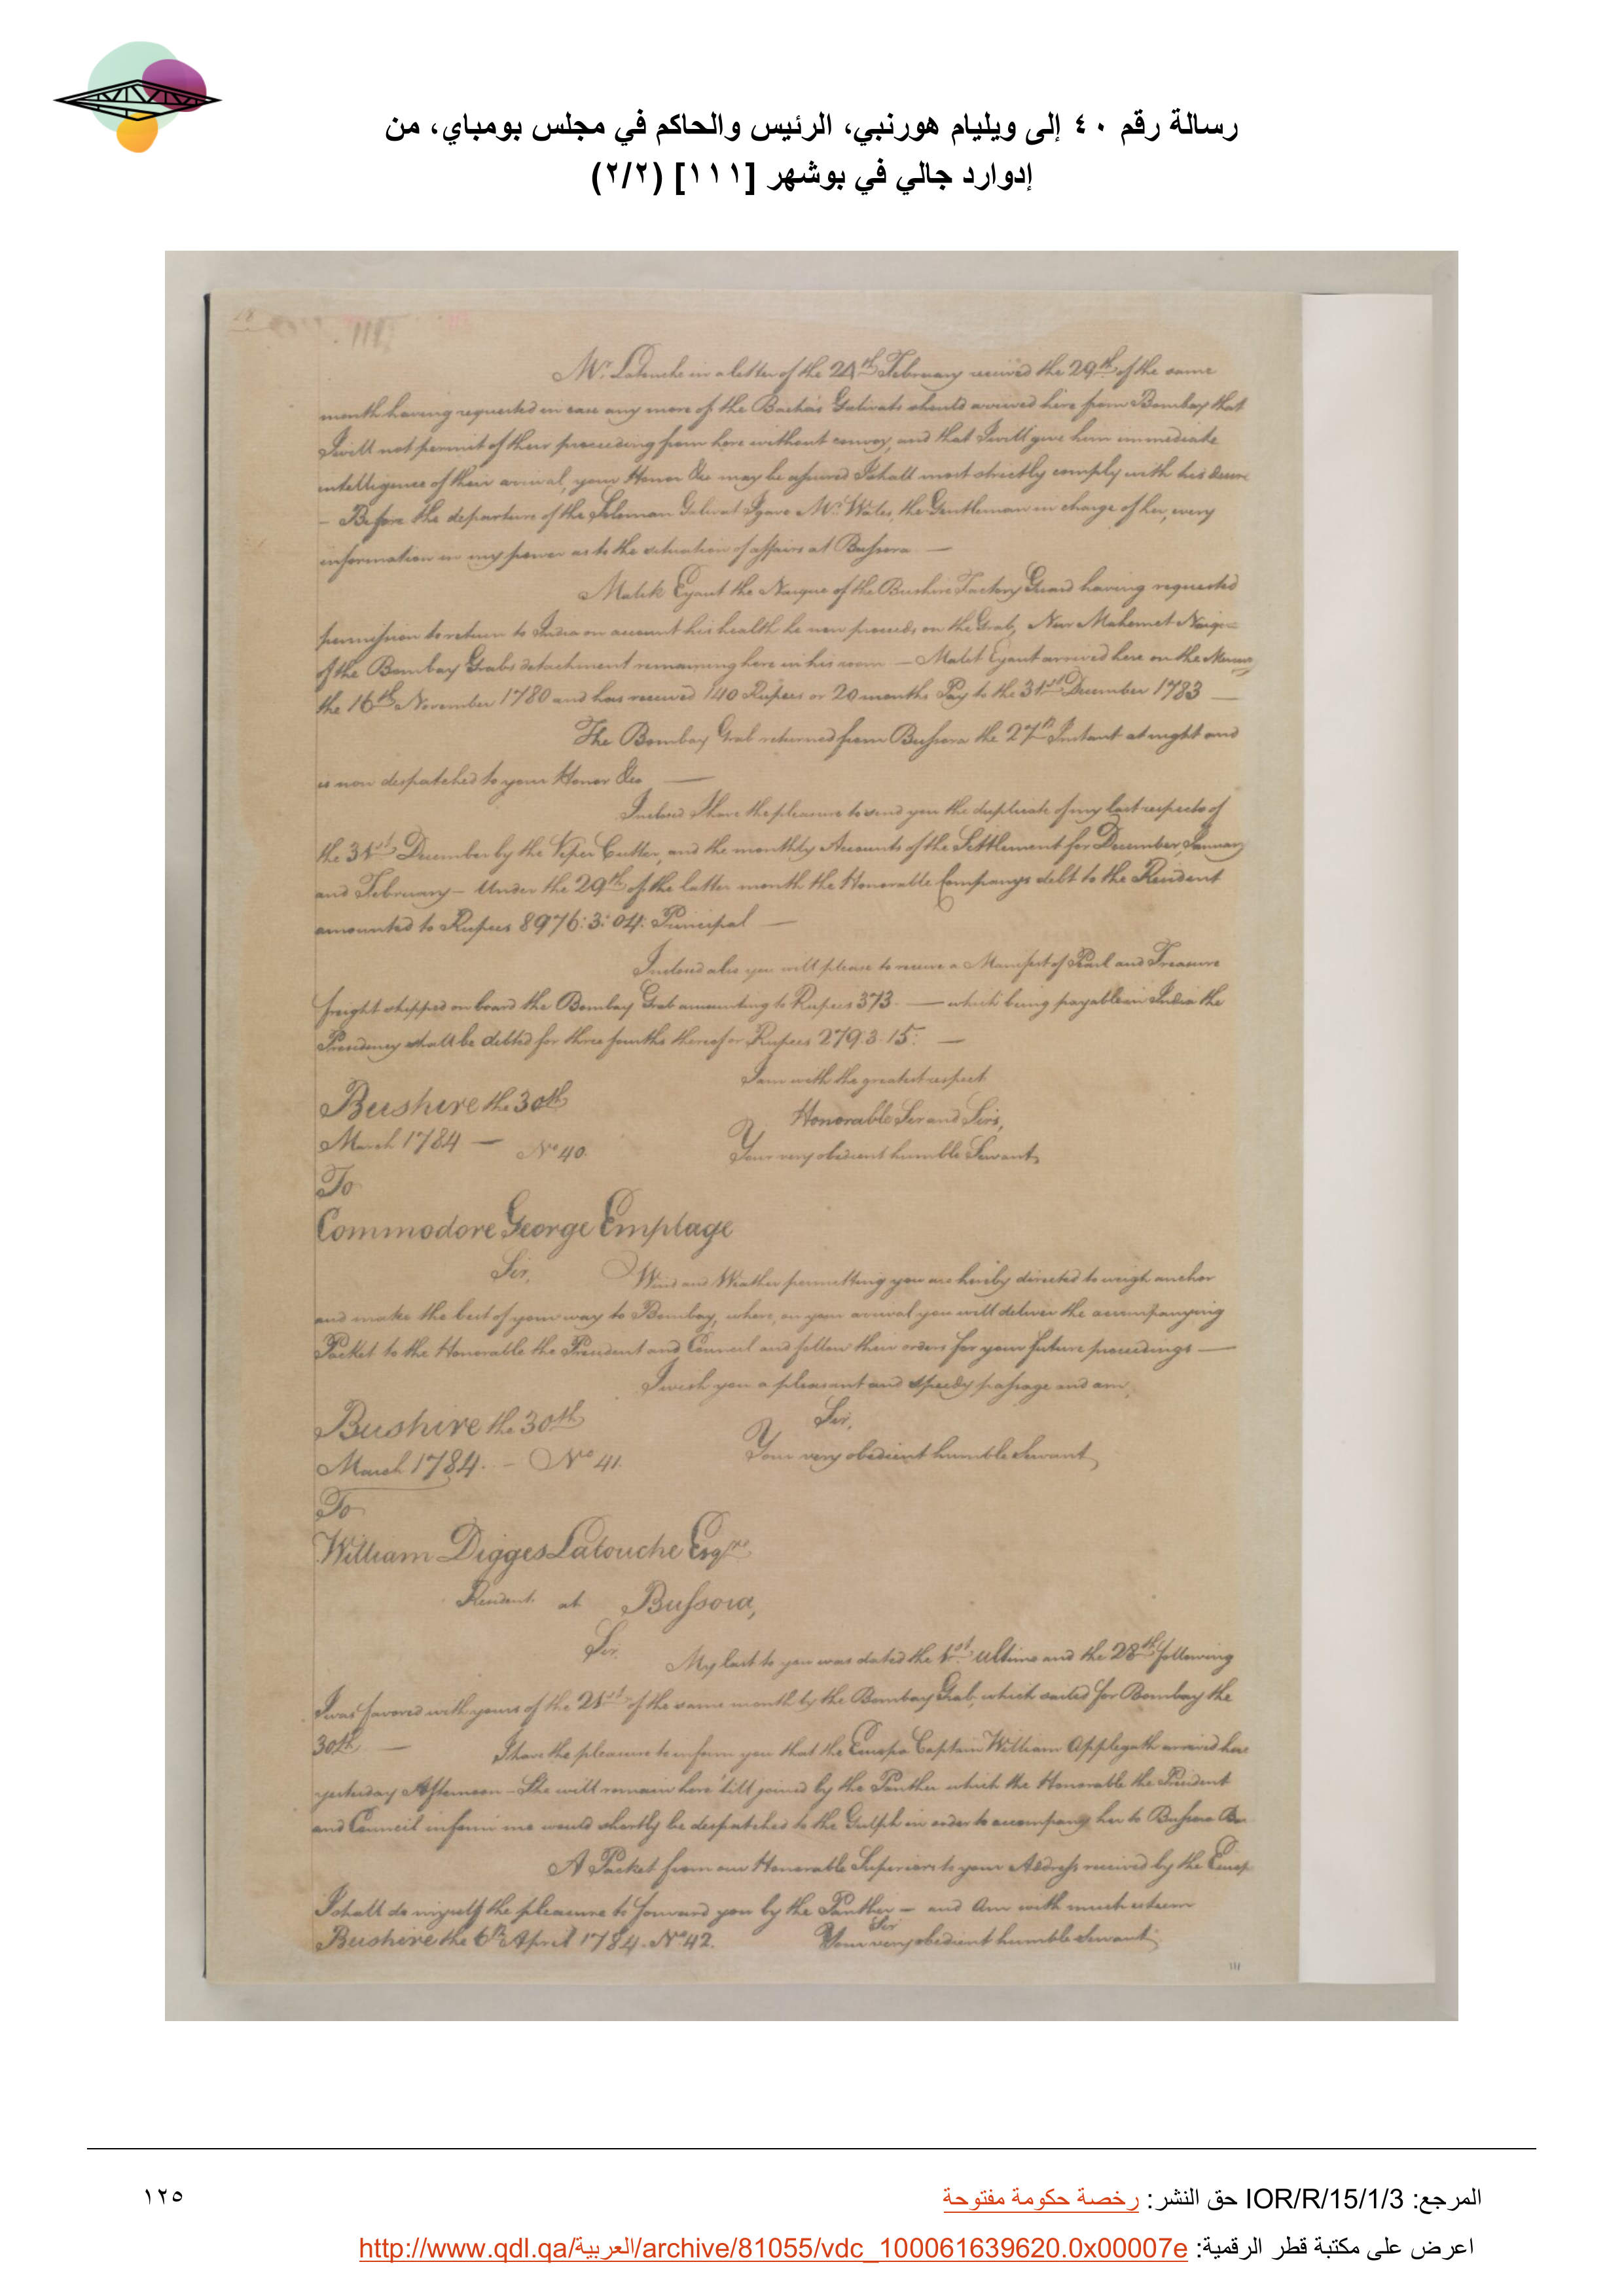 رسالة رقم ٤٠ إلى ويليام هورنبي، الرئيس والحاكم في مجلس بومباي، من
إدوارد جالي في بوشهر [١١١] (٢/٢)
Mr. Latouche in a letter of the 24th February received the 29th of the same
month having requested in case any more of the Bacha's Galivats should arrived here from Bombay that
I will not permit of their proceeding from here without convoy, and that I will give him immediate
intelligence of their arrival, your Honor &ca may be assured I shall most strictly comply with his desire
– Before the departure of the Soleman Galivat I gave Mr. Wales, the Gentleman in charge of her, every
information in my power as to the situation of affairs at Bussora —
Malik Eyaut the Naique of the Bushire Factory Guard having requested
permission to return to India on account his health he now proceeds on the Grab, Noor Mahomet Naique
of the Bombay Grabs detachment remaining here in his room — Malik Eyaut arrived here on the
the 16th November 1780 and has received 140 Rupees or 20 months Pay to the 31st December 1783 —
The Bombay Grab returned from Bussora the 27th Instant at night and
is now despatched to your Honor &ca —
Inclosed I have the pleasure to send you the duplicate of my last respects of
the 31st December by the Viper Cutter, and the monthly Accounts of the Settlement for December, January
and February – Under the 29th of the latter month the Honorable Companys debt to the Resident
amounted to Rupees 8976:3:04: Principal —
Inclosed also you will please to receive a Manifest of Pearl and Treasure
freight shipped on board the Bombay Grab amounting to Rupees 373. — which being payable in India the
Presidency shall be debted for three fourths thereof or Rupees 279:3:15: —
I am with the greatest respect
Bushire the 30th
Honorable Sir and Sirs,
March 1784 — No 40.
Your very obedient humble Servant,
To
Commodore George Emptage
Sir, Wind and Weather permitting you are hereby directed to weigh anchor
and make the best of your way to Bombay, where, on your arrival you will deliver the accompanying
Packet to the Honorable the President and Council and follow their orders for your future proceedings —
I wish you a pleasant and speedy passage and am,
Bushire the 30th Sir,
March 1784. – No 41. Your very obedient humble Servant,
To
William Digges Latouche Esqre
Resident at Bussora,
Sir. My last to you was dated the 1st Ultimo and the 28th following
I was favored with yours of the 21st of the same month by the Bombay Grab, which sailed for Bombay the
30th — I have the pleasure to inform you that the Europa Captain William Applegath arrived here
yesterday Afternoon – She will remain here 'till joined by the Panther which the Honorable the President
and Council inform me would shortly be despatched to the Gulph in order to accompany her to Bussora
A Packet from our Honorable Superiors to your Address received by the Europa
I shall do myself the pleasure to forward you by the Panther – and Am with much esteem
Sir
Bushire the 6th April 1784. No 42. Your very obedient humble Servant,
111
المرجع: IOR/R/15/1/3 حق النشر: رخصة حكومة مفتوحة
١٢٥
اعرض على مكتبة قطر الرقمية: http://www.qdl.qa/العربية/archive/81055/vdc_100061639620.0x00007e